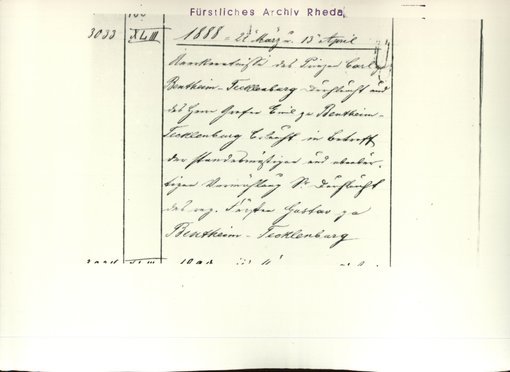 Fürstliches Archiv Rheda
3033 XLIII 1888 = 22 März u. 13 April
Anerkenntniß des Prinzen Carl zu
Bentheim-Tecklenburg Durchlaucht und
des Herrn Grafen Emil zu Bentheim-
Tecklenburg Erlaucht in betreff
der standesmäßigen und ebenbür-
tigen Vermählung Sr Durchlaucht
des reg. Fürsten Gustav zu
Bentheim-Tecklenburg